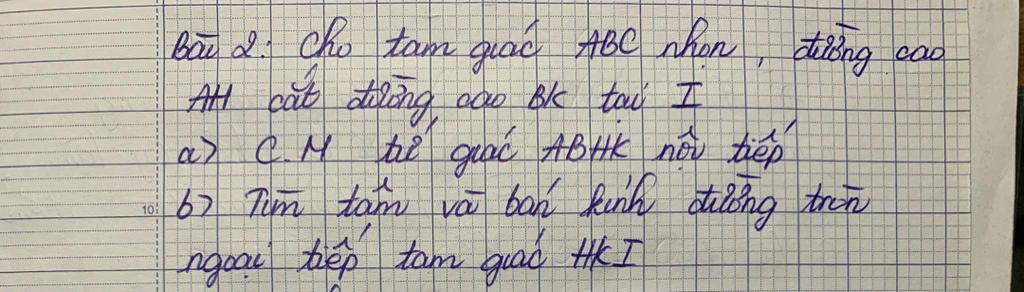 Bài 2: Cho tam giác ABC nhọn, đường cao
AH cắt đường cao BK tại I
a) C.M tứ giác ABHK nội tiếp
10 b) Tìm tâm và bán kính đường tròn
ngoại tiếp tam giác HKI